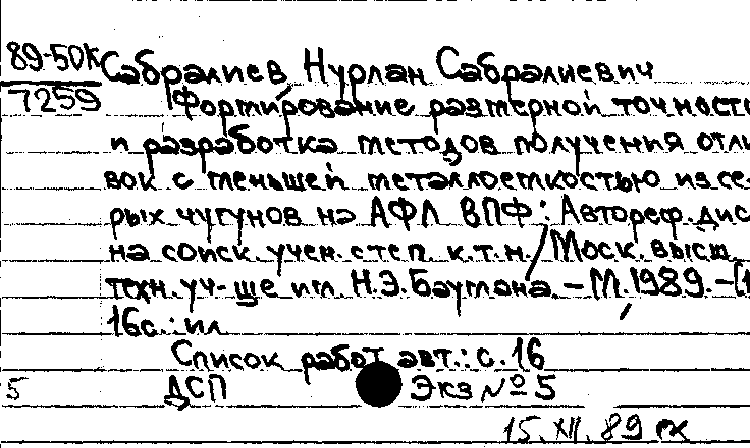 89-50К Сабралиев Нурлан Сабралиевич
7259 Формирование размерной точность
и разработка методов получения отли
вок с меньшей металлоемкостью из се
рых чугунов на АФЛ ВПФ: Автореф. дис
на соиск. учен. степ. к.т.н. / Моск. высш.
техн. уч-ще им. Н.Э. Баумана. – М. 1989. – [1
16с.: ил
Список работ авт.: с. 16
5 ДСП Экз № 5
15.XII.89